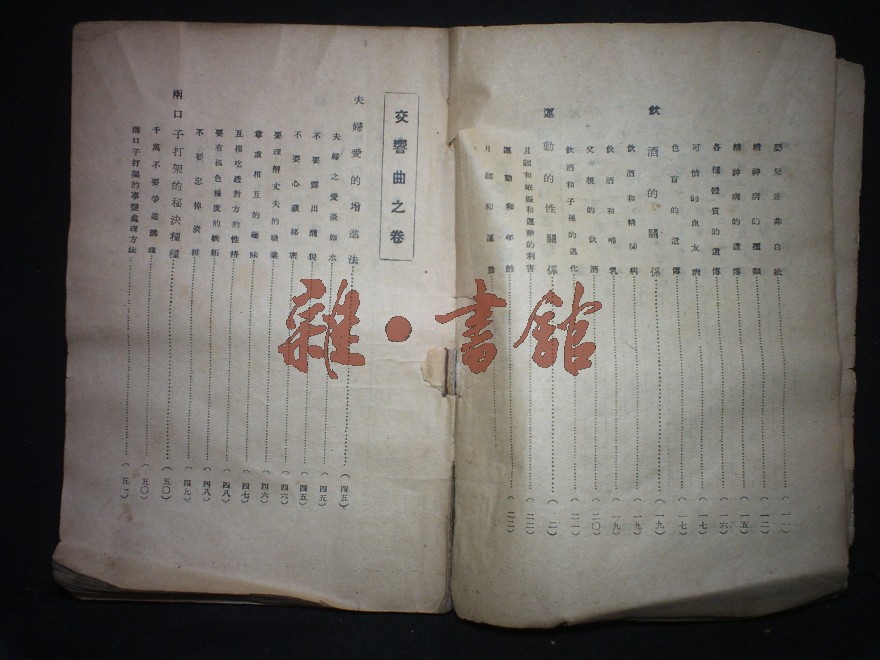 嬰兒並非白紙……（一一）
精神病的種類……（一二）
精神病的遺傳……（一五）
各種體質的遺傳……（一六）
可怕的血友病……（一七）
色盲的遺傳……（一七）
飲酒的關係……（一九）
飲酒和精神病……（一九）
飲酒和哺乳……（一九）
父親的飲酒……（二〇）
飲酒和子孫的退化……（二一）
運動的性關係……（二）
月經和妊娠和運動的利害……（二二）
運動和年齡……（二二）
月經和運動
交響曲之卷
夫婦愛的增進法……（四五）
夫婦之愛淡如水……（四五）
不要露出醜貌……（四五）
不要心藏秘密……（四六）
要理解丈夫的職業……（四六）
尊重相互的趣味……（四七）
互相吃透對方的性格……（四八）
要有桃色程度的嫉妬……（四八）
不要忘掉淡粧……（四九）
兩口子打架的秘決種種……（五〇）
千萬不要爭道講理……（五〇）
兩口子打架的事變處理方法……（五一）
雜·書舘